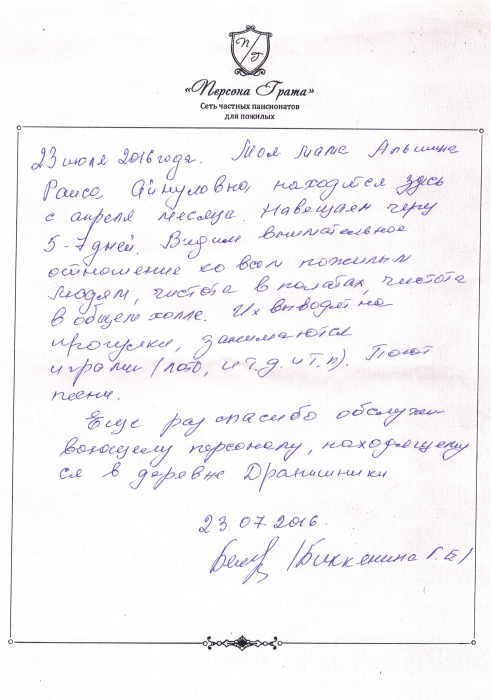 П Г
«Персона Грата»
Сеть частных пансионатов
для пожилых
23 июля 2016 года. Моя мама Альшина
Раиса Айнуловна, находится здесь
с апреля месяца. Навещаем через
5-7 дней. Видим внимательное
отношение ко всем пожилым
людям, чистота в палатах, чистота
в общем холле. Их выводят на
прогулки, занимаются
играми (лото, и т.д. и т.п). Поют
песни.
Еще раз спасибо обслужи-
вающему персоналу, находящему
ся в деревне Дранишники
23.07.2016.
/Биккенина Г.Б/